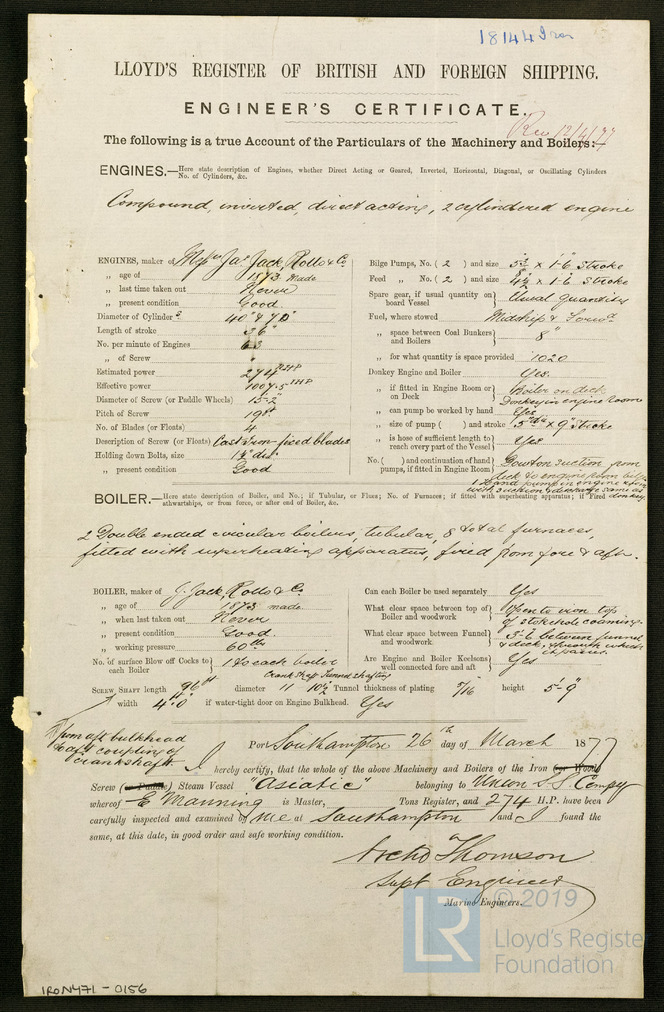 18144 Iron
LLOYD'S REGISTER OF BRITISH AND FOREIGN SHIPPING.
ENGINEER'S CERTIFICATE.
Rec 12/4/77
The following is a true Account of the Particulars of the Machinery and Boilers:—
ENGINES.—Here state description of Engines, whether Direct Acting or Geared, Inverted, Horizontal, Diagonal, or Oscillating Cylinders
No. of Cylinders, &c.
Compound, inverted, direct acting, 2 cylindered engine
ENGINES, maker of Messrs Jas Jack, Rollo & Co.
„ age of 1873 Made
„ last time taken out Never
„ present condition Good
Diameter of Cylinders 40" & 70"
Length of stroke 36"
No. per minute of Engines 63
„ of Screw "
Estimated power 274 NHP
Effective power 1007.5 IHP
Diameter of Screw (or Paddle Wheels) 15-2"
Pitch of Screw 19ft
No. of Blades (or Floats) 4
Description of Screw (or Floats) Cast iron-fixed blades
Holding down Bolts, size dia.
„ present condition Good
Bilge Pumps, No. ( 2 ) and size x 1-6 stroke
Feed „ No. ( 2 ) and size 4½ x 1-6 Stroke
Spare gear, if usual quantity on board Vessel Usual quantity
Fuel, where stowed Midship & Forwd
„ space between Coal Bunkers and Boilers 8"
„ for what quantity is space provided 1020
Donkey Engine and Boiler Yes.
„ if fitted in Engine Room or on Deck Boiler on deck
Donkey in engine room
„ can pump be worked by hand Yes
„ size of pump ( ) and stroke 5" dia x 9" Stroke
„ is hose of sufficient length to reach every part of the Vessel Yes
No. ( ) and continuation of hand pumps, if fitted in Engine Room Downton suction from
deck to engine room bilge
1 Hand pump in engine room
with suction & delivery same as
donkey.
BOILER.—Here state description of Boiler, and No.; if Tubular, or Flues; No. of Furnaces; if fitted with superheating apparatus; if Fired
athwartships, or from force, or after end of Boiler, &c.
2 Double ended circular boilers, tubular, 8 total furnaces,
fitted with superheating apparatus, fired from fore & aft.
BOILER, maker of J. Jack, Rollo & Co
„ age of 1873 made
„ when last taken out Never
„ present condition Good.
„ working pressure 60 lbs
No. of surface Blow off Cocks to each Boiler 1 to each boiler
Can each Boiler be used separately Yes
What clear space between top of Boiler and woodwork Open to iron top
of stokehole coaming.
What clear space between Funnel and woodwork. 3-6 between funnel
& deck, through which
it passes.
Are Engine and Boiler Keelsons well connected fore and aft Yes
Crank shaft Tunnel shafting
SCREW SHAFT length 96 ft diameter 11 10½ Tunnel thickness of plating 5/16 height 5'-9"
width 4'.0" if water-tight door on Engine Bulkhead. Yes
from aft bulkhead
to aft coupling of
crankshaft.
Port Southampton 26th day of March 1877
I hereby certify, that the whole of the above Machinery and Boilers of the Iron (or Wood)
Screw (or Paddle) Steam Vessel "Asiatic" belonging to Union S.S. Compy
whereof E Manning is Master, Tons Register, and 274 H.P. have been
carefully inspected and examined by me at Southampton and I found the
same, at this date, in good order and safe working condition.
Archd Thomson
Supt Engineer
Marine Engineers.
LR
© 2019
Lloyd's Register
Foundation
IRON471-0156